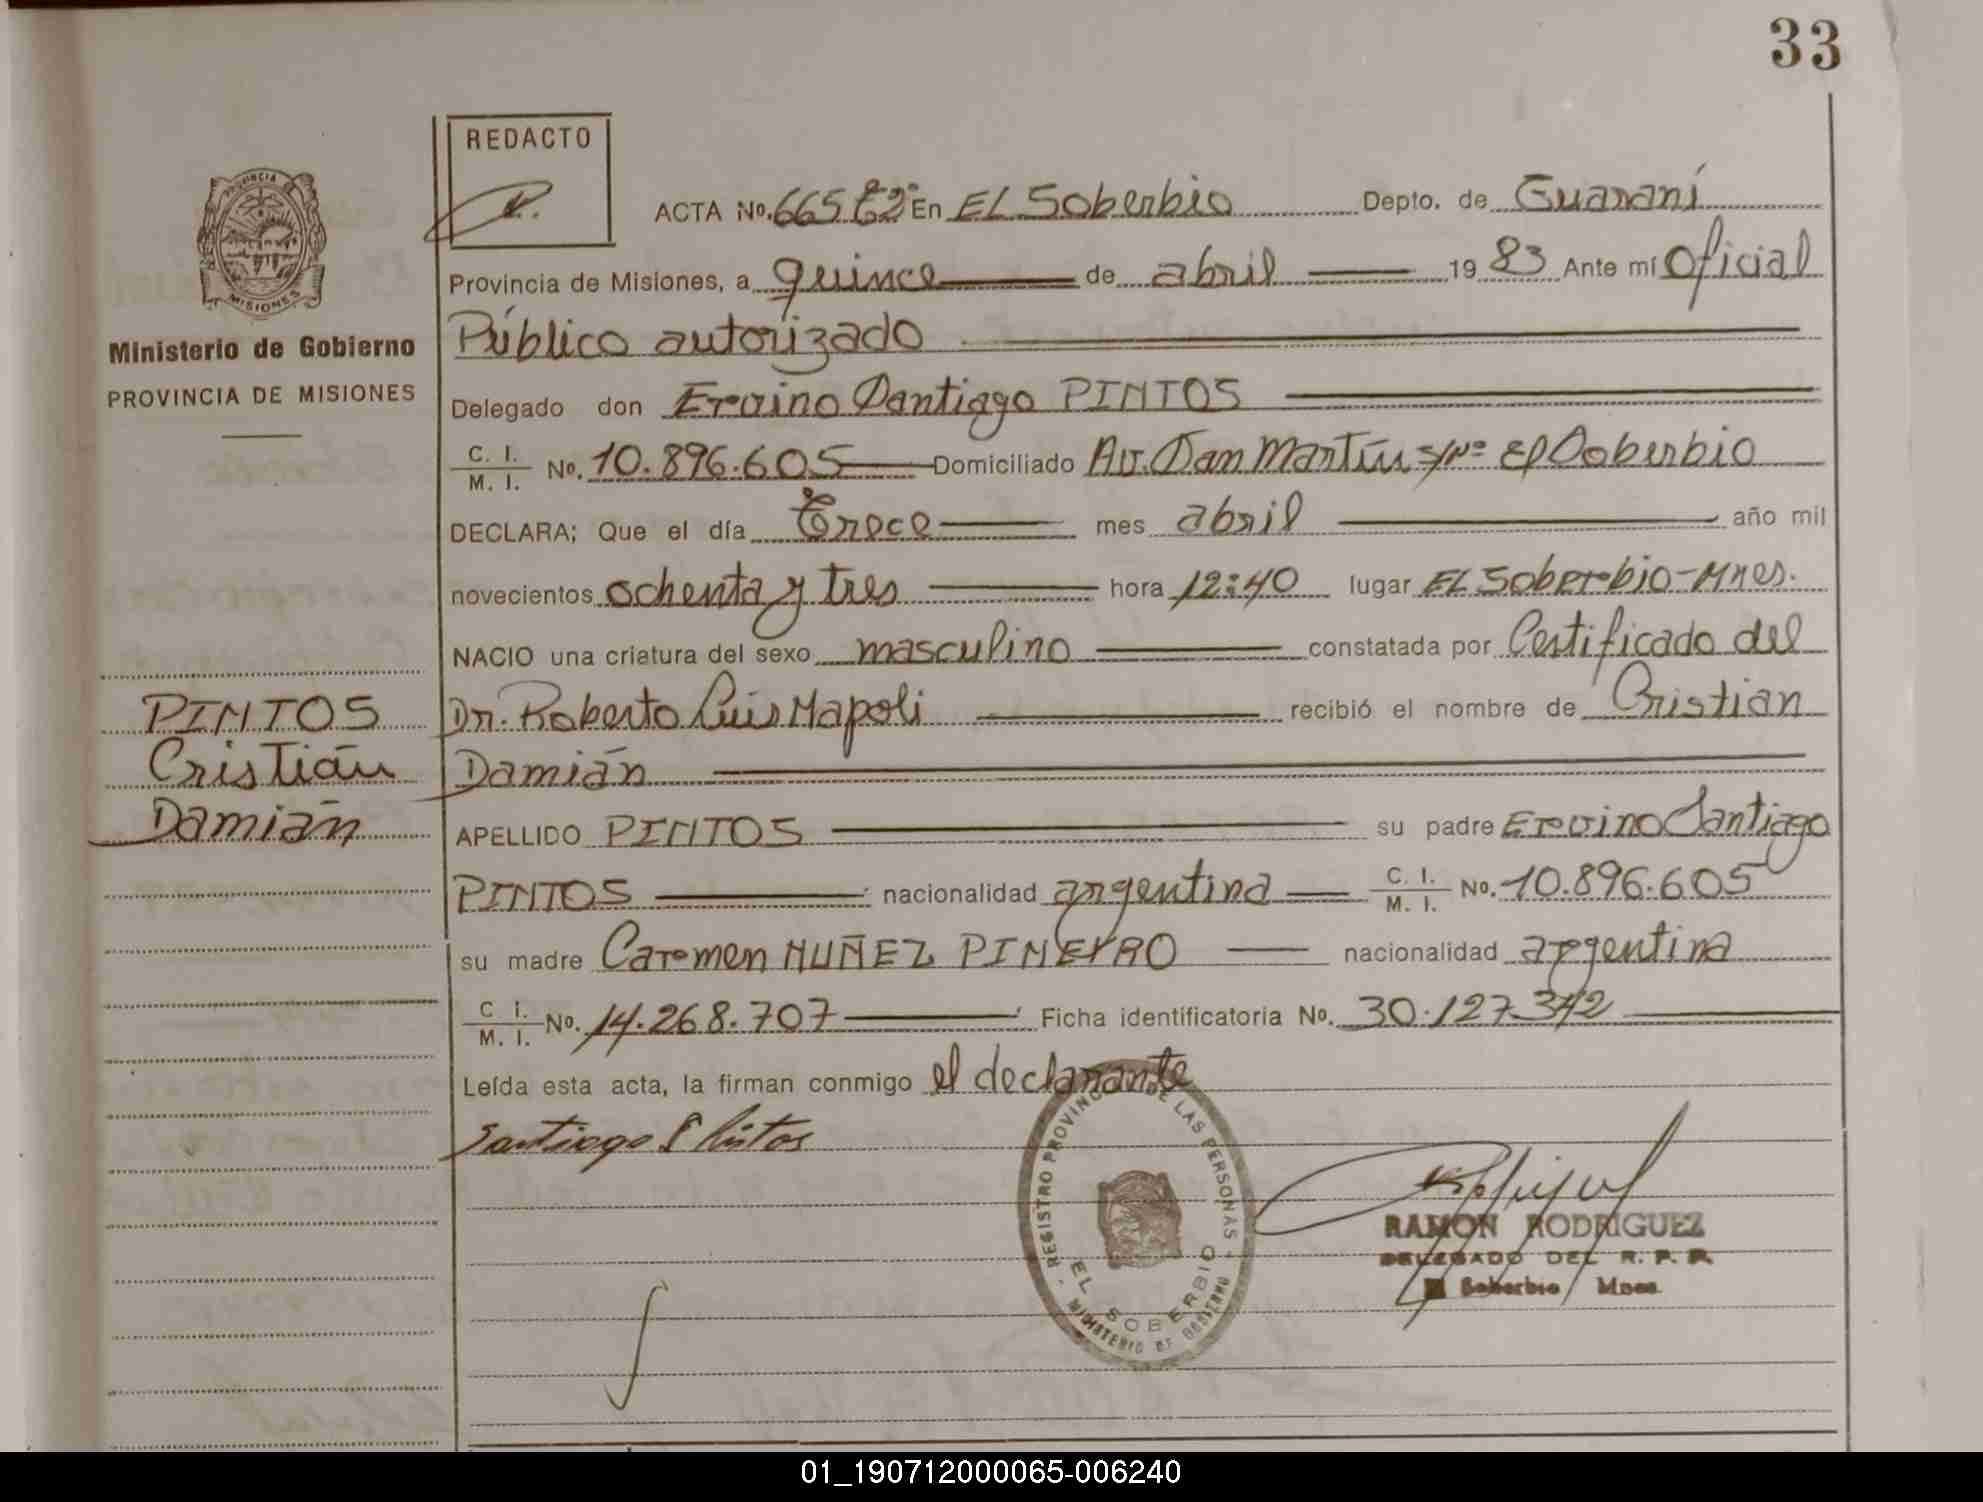 33
REDACTO
ACTA No. 665 Tº 2º En EL Soberbio Depto. de Guaraní
Provincia de Misiones, a quince de abril 1983 Ante mí Oficial
Público autorizado
Delegado don Ervino Santiago PINTOS
C. I.
M. I. No. 10.896.605 Domiciliado Av. San Martín s/Nº El Soberbio
DECLARA; Que el día Trece mes abril año mil
novecientos ochenta y tres hora 12:40 lugar EL Soberbio-Mnes.
NACIO una criatura del sexo masculino constatada por Certificado del
Dr. Roberto Luis Napoli recibió el nombre de Cristian
Damián
APELLIDO PINTOS su padre Ervino Santiago
PINTOS nacionalidad argentina C. I.
M. I. No. 10.896.605
su madre Carmen NUÑEZ PINEYRO nacionalidad argentina
C I.
M. I. No. 14.268.707 Ficha identificatoria No. 30.127.342
Leída esta acta, la firman conmigo el declarante
Santiago E Pintos
PROVINCIA DE
MISIONES
Ministerio de Gobierno
PROVINCIA DE MISIONES
PINTOS
Cristián
Damián
REGISTRO PROVINCIAL DE LAS PERSONAS
EL SOBERBIO
MINISTERIO DE GOBIERNO
RAMON RODRIGUEZ
DELEGADO DEL R. P. P.
El Soberbio Mnes.
01_190712000065-006240